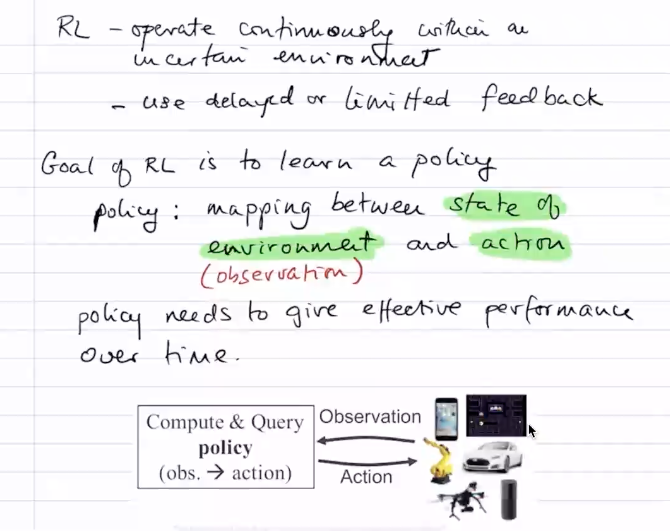 RL - operate continuously within an
uncertain environment
- use delayed or limitted feedback
Goal of RL is to learn a policy
policy: mapping between state of
environment and action
(observation)
policy needs to give effective performance
over time.
Compute & Query
policy
(obs. → action)
Observation
Action